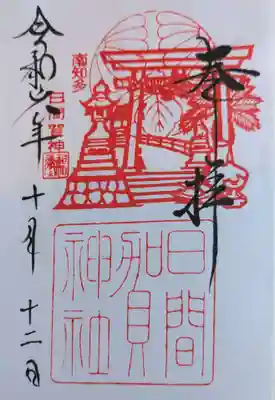 奉拝
南知多
日間賀神社
日間賀神社
令和 年 十月 十二日